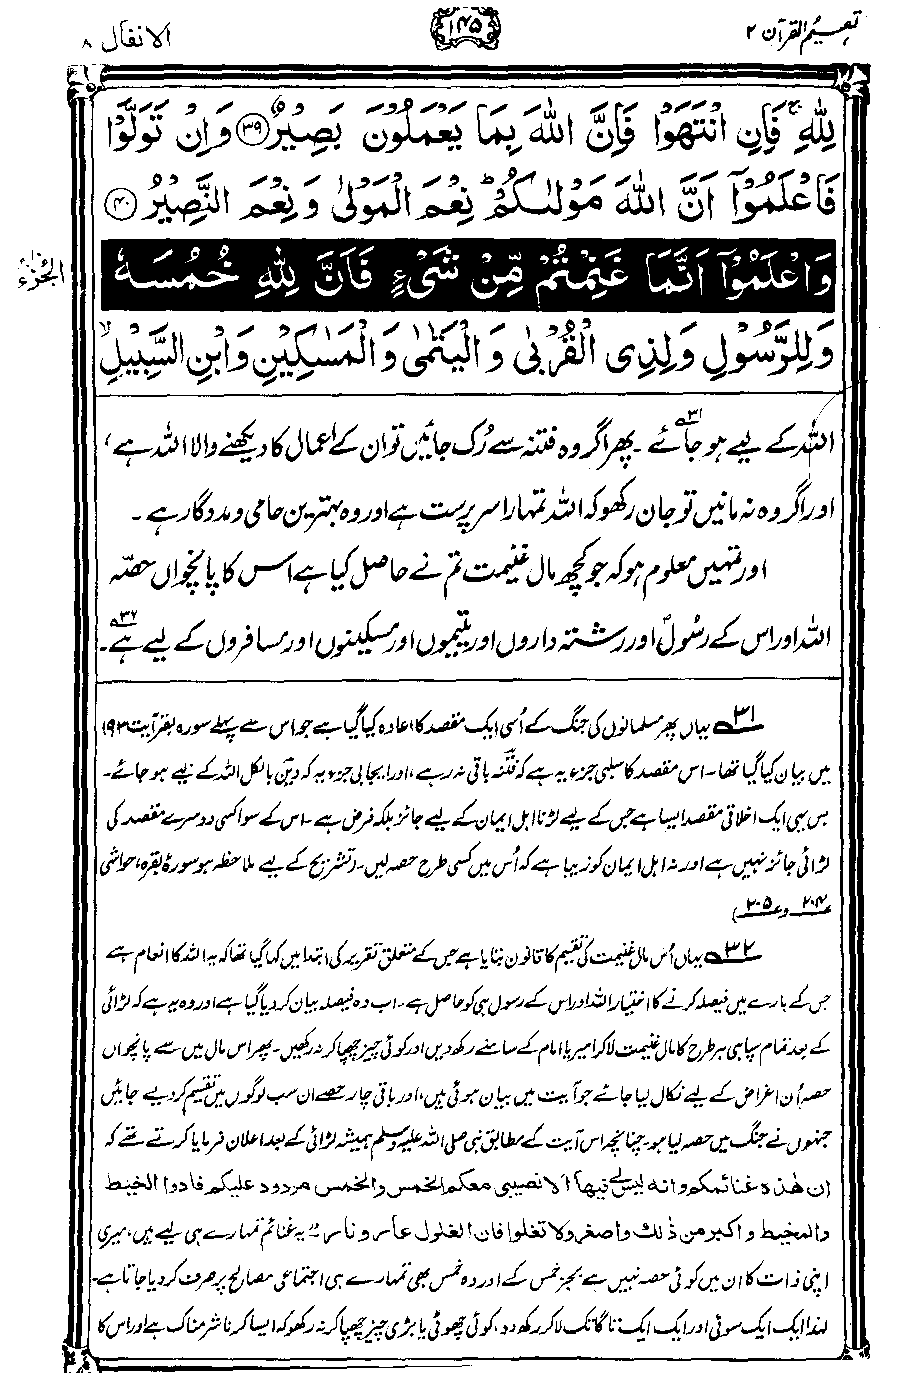 تفہیم القرآن ۲
۱۴۵
الانفال ۸
لِلّٰهِ ۚ فَاِنِ انْتَهَوْا فَاِنَّ اللّٰهَ بِمَا يَعْمَلُوْنَ بَصِيْرٌ ﴿۳۹﴾ وَاِنْ تَوَلَّوْا
فَاعْلَمُوْۤا اَنَّ اللّٰهَ مَوْلٰىكُمْ ؕ نِعْمَ الْمَوْلٰى وَنِعْمَ النَّصِيْرُ ﴿۴۰﴾
الجزء
وَاعْلَمُوْۤا اَنَّمَا غَنِمْتُمْ مِّنْ شَيْءٍ فَاَنَّ لِلّٰهِ خُمُسَهٗ
وَلِلرَّسُوْلِ وَلِذِى الْقُرْبٰى وَالْيَتٰمٰى وَالْمَسٰكِيْنِ وَابْنِ السَّبِيْلِ ۙ
اللہ کے لیے ہو جائے۳۱۔ پھر اگر وہ فتنہ سے رُک جائیں تو ان کے اعمال کا دیکھنے والا اللہ ہے،
اور اگر وہ نہ مانیں تو جان رکھو کہ اللہ تمہارا سرپرست ہے اور وہ بہترین حامی و مددگار ہے۔
اور تمہیں معلوم ہو کہ جو کچھ مال غنیمت تم نے حاصل کیا ہے اس کا پانچواں حصّہ
اللہ اور اس کے رسُولؐ اور رشتہ داروں اور یتیموں اور مسکینوں اور مسافروں کے لیے ہے۳۲۔
۳۱ یہاں پھر مسلمانوں کی جنگ کے اُسی ایک مقصد کا اعادہ کیا گیا ہے جو اس سے پہلے سورہ بقر آیت ۱۹۳
میں بیان کیا گیا تھا۔ اس مقصد کا سلبی جزء یہ ہے کہ فتنہ باقی نہ رہے، اور ایجابی جزء یہ کہ دین بالکل اللہ کے لیے ہو جائے۔
بس یہی ایک اخلاقی مقصد ایسا ہے جس کے لیے لڑنا اہل ایمان کے لیے جائز بلکہ فرض ہے۔ اس کے سوا کسی دوسرے مقصد کی
لڑائی جائز نہیں ہے اور نہ اہل ایمان کو زیبا ہے کہ اُس میں کسی طرح حصہ لیں۔ (تشریح کے لیے ملاحظہ ہو سورۂ بقرہ، حواشی
۲۰۴ و ۲۰۵)
۳۲ یہاں اُس مال غنیمت کی تقسیم کا قانون بتایا ہے جس کے متعلق تقریر کی ابتدا میں کہا گیا تھا کہ یہ اللہ کا انعام ہے
جس کے بارے میں فیصلہ کرنے کا اختیار اللہ اور اس کے رسول ہی کو حاصل ہے۔ اب وہ فیصلہ بیان کر دیا گیا ہے اور وہ یہ ہے کہ لڑائی
کے بعد تمام سپاہی ہر طرح کا مال غنیمت لا کر امیر یا امام کے سامنے رکھ دیں اور کوئی چیز چھپا کر نہ رکھیں۔ پھر اس مال میں سے پانچواں
حصہ اُن اغراض کے لیے نکال لیا جائے جو آیت میں بیان ہوئی ہیں، اور باقی چار حصے ان سب لوگوں میں تقسیم کر دیے جائیں
جنہوں نے جنگ میں حصہ لیا ہو۔ چنانچہ اس آیت کے مطابق نبی صلی اللہ علیہ وسلم ہمیشہ لڑائی کے بعد اعلان فرمایا کرتے تھے کہ
ان هذه غنائمكم وانه ليس لى فيها الا نصيبى معكم الخمس والخمس مردود عليكم فادوا الخيط
والمخيط و اكبر من ذلك واصغر ولا تغلوا فان الغلول عار و نار۔ ”یہ غنائم تمہارے ہی لیے ہیں، میری
اپنی ذات کا ان میں کوئی حصہ نہیں ہے بجز خمس کے اور وہ خمس بھی تمہارے ہی اجتماعی مصالح پر صرف کر دیا جاتا ہے۔
لہٰذا ایک ایک سوئی اور ایک ایک تاگا تک لا کر رکھ دو، کوئی چھوٹی یا بڑی چیز چھپا کر نہ رکھو کہ ایسا کرنا شرمناک ہے اور اس کا